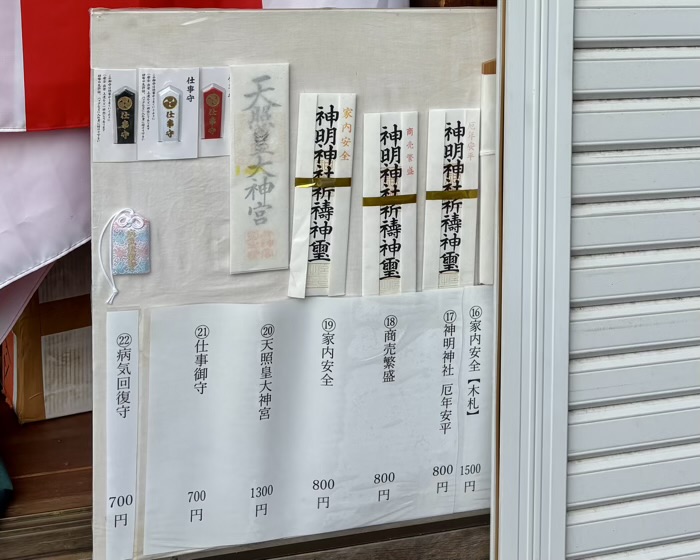 家内安全
神明神社祈禱神璽
商売繁盛
神明神社祈禱神璽
神明神社祈禱神璽
天照皇大神宮
仕事守
仕事守
仕事守
仕事守
⑯家内安全【木札】
1500円
⑰神明神社 厄年安平
800円
⑱商売繁盛
800円
⑲家内安全
800円
⑳天照皇大神宮
1300円
㉑仕事御守
700円
㉒病気回復守
700円